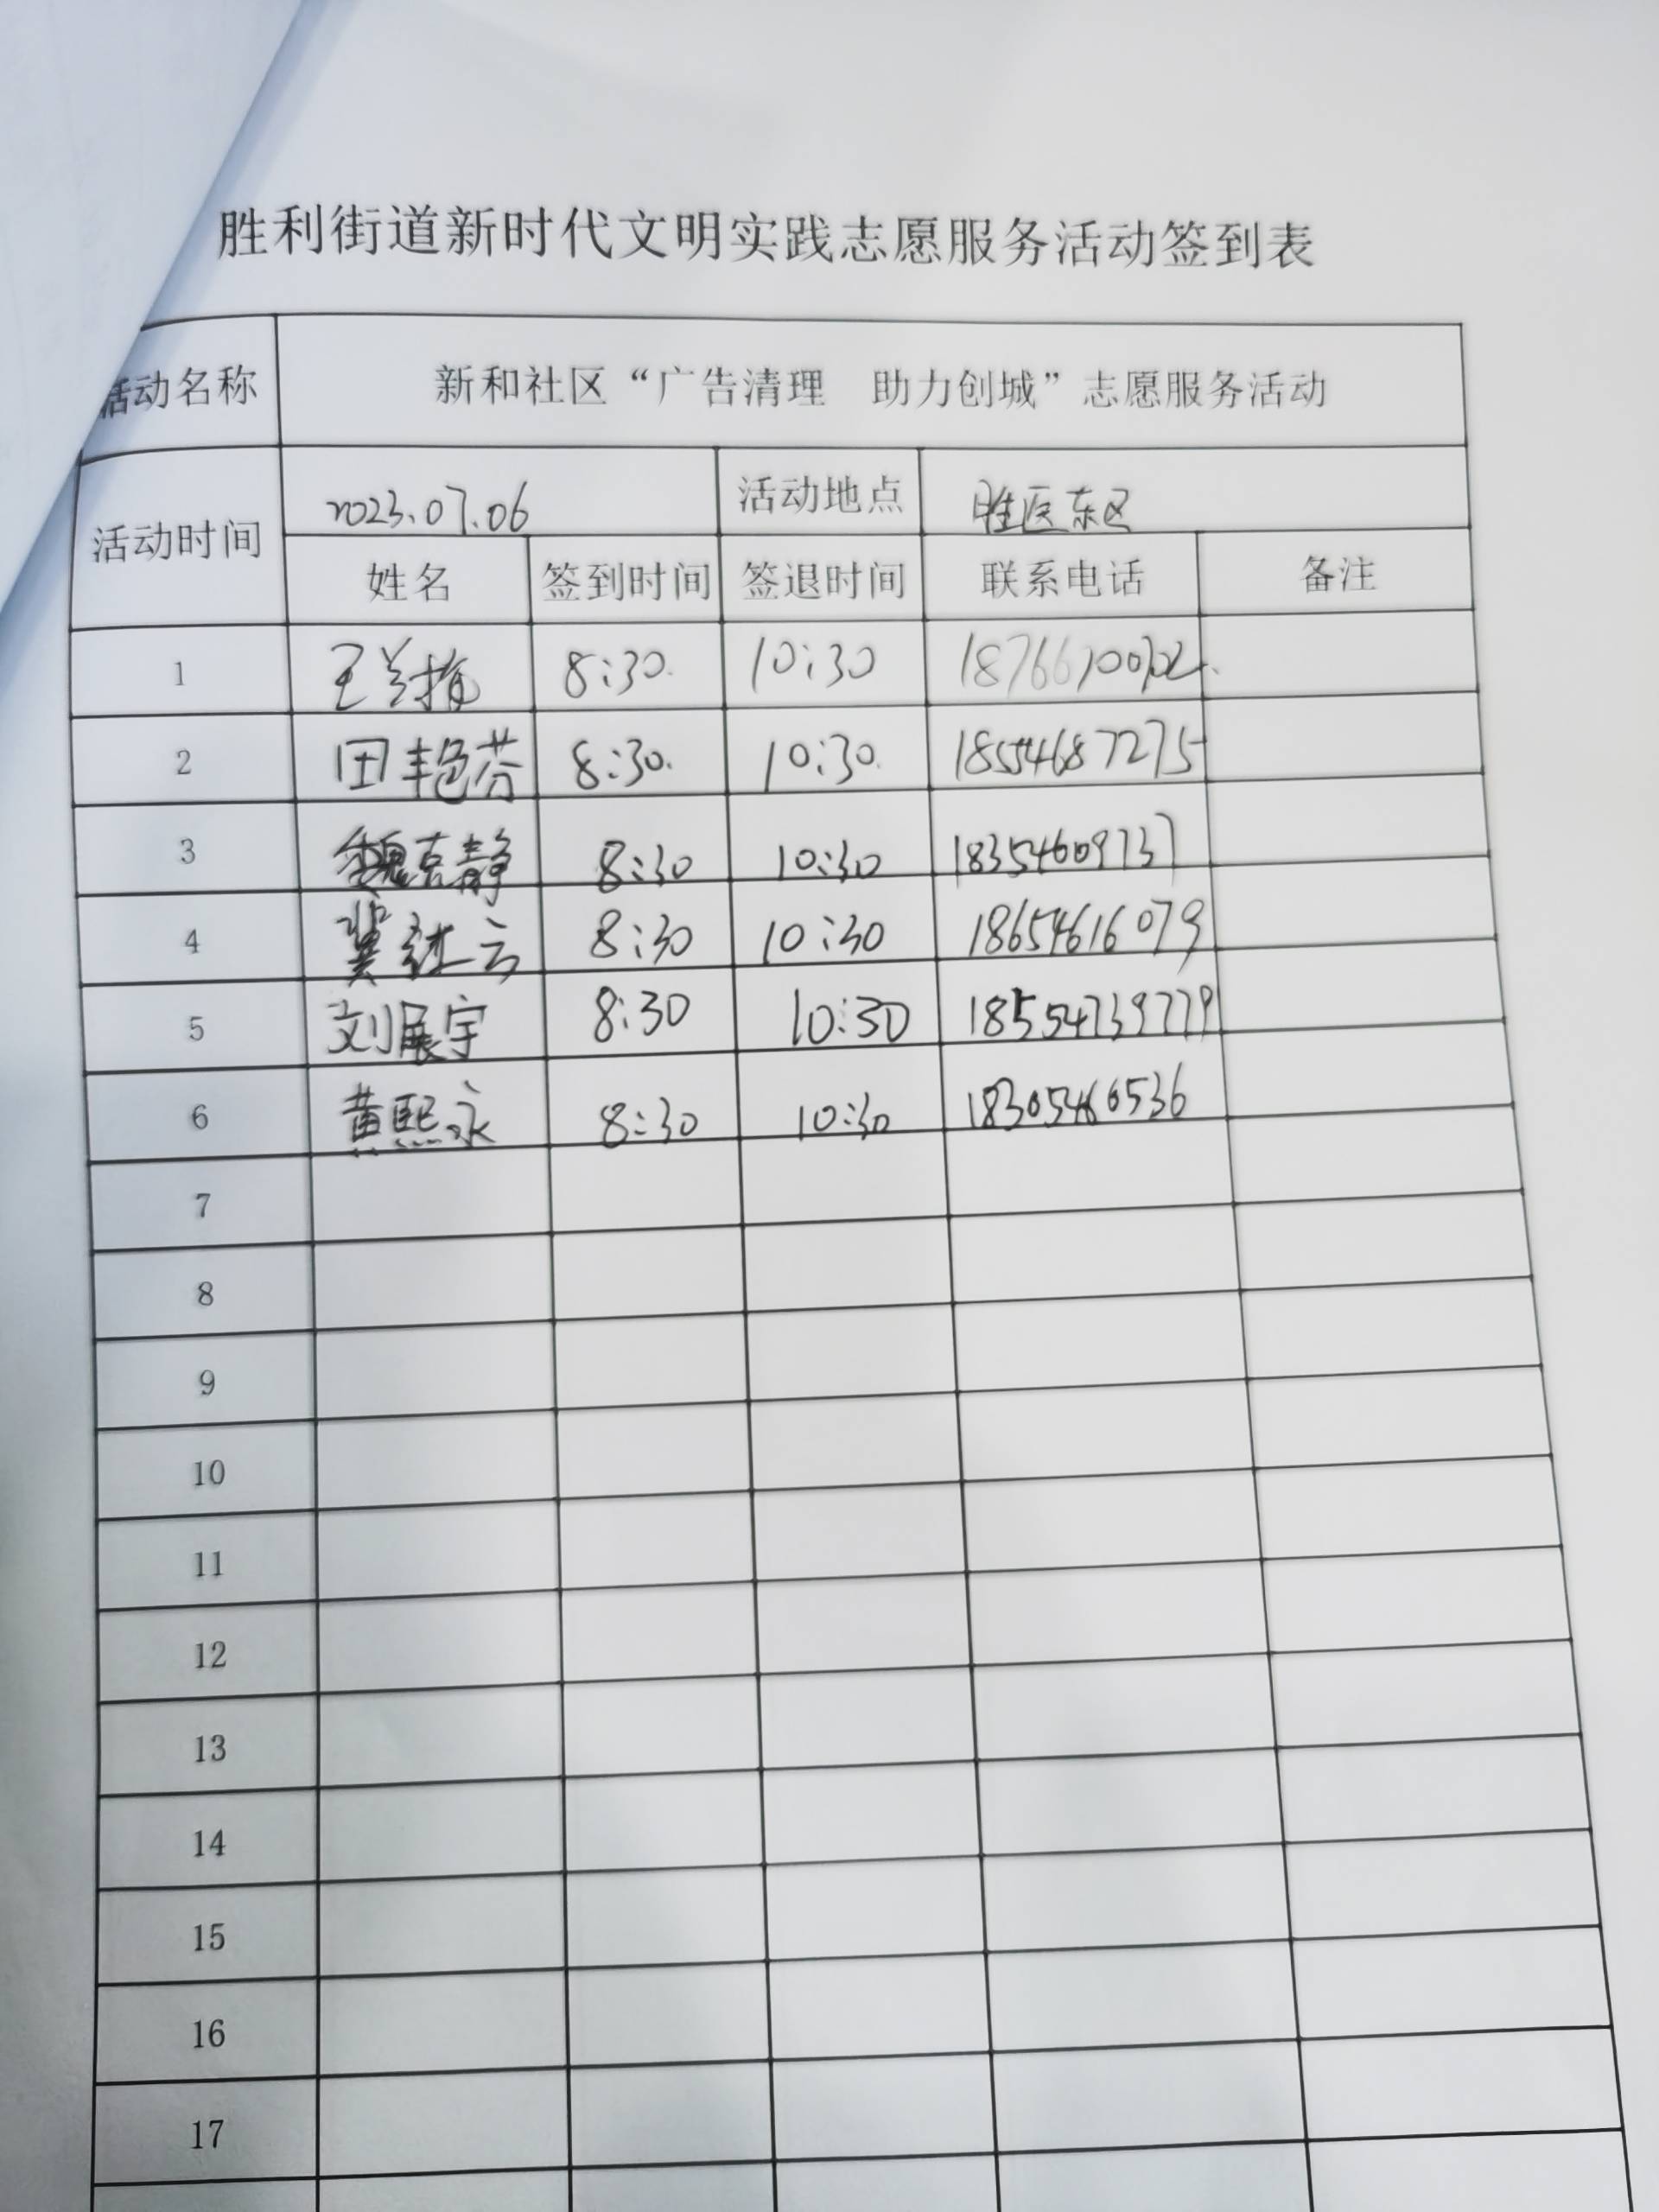 胜利街道新时代文明实践志愿服务活动签到表
活动名称 新和社区“广告清理 助力创城”志愿服务活动
活动时间 2023.07.06 活动地点 胜医东区
姓名 签到时间 签退时间 联系电话 备注
1 王兰梅 8:30 10:30
2 田艳芬 8:30 10:30 18554687275
3 魏克静 8:30 10:30 18354609737
4 冀红云 8:30 10:30 18654616079
5 刘展宇 8:30 10:30 18554739779
6 黄熙永 8:30 10:30 18305460536
7
8
9
10
11
12
13
14
15
16
17